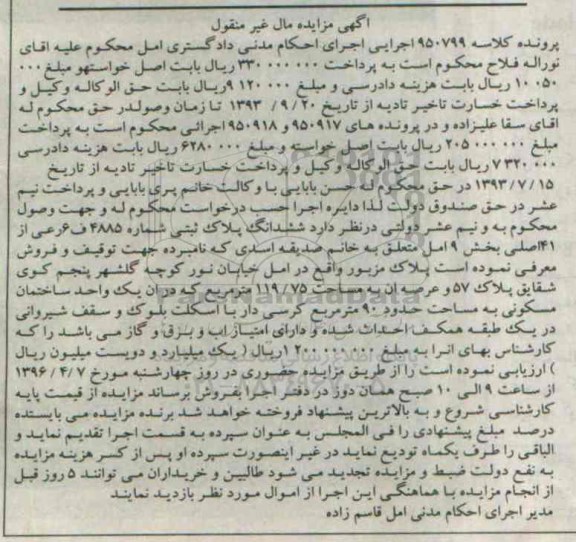 آگهی مزایده مال غیر منقول
پرونده کلاسه ۹۵۰۷۹۹ اجرایی اجرای احکام مدنی دادگستری امل محکوم علیه اقای
نوراله فلاح محکوم است به پرداخت ۳۳۰ ۰۰۰ ۰۰۰ ریال بابت اصل خواستهو مبلغ ۰۰۰
۱۰ ۰۵۰ ریال بابت هزینه دادرسی و مبلغ ۰۰۰ ۱۲۰ ۹ریال بابت حق الوکاله وکیل و
پرداخت خسارت تاخیر تادیه از تاریخ ۲۰ /۹ /۱۳۹۳ تا زمان وصولدر حق محکوم له
اقای سقا علیزاده و در پرونده های ۹۵۰۹۱۷و ۹۵۰۹۱۸ اجرائی محکوم است به پرداخت
مبلغ ۰۰۰ ۰۰۰ ۲۰۵ ریال بابت اصل خواسته و مبلغ ۰۰۰ ۶۲۸۰ ریال بابت هزینه دادرسی
۰۰۰ ۳۲۰ ۷ ریال بابت حق الوکاله وکیل و پرداخت خسارت تاخیر تادیه از تاریخ
۱۵ /۱۳۹۳/۷ در حق محکوم له حسن بابایی با وکالت خانم پری بابایی و پرداخت نیم
عشر در حق صندوق دولت لذا دایره اجرا حسب درخواست محکوم له و جهت وصول
محکوم به و نیم عشر دولتی درنظر دارد ششدانگ پلاک ثبتی شماره ۴۸۸۵ ف۶رعی از
۴۱اصلی بخش ۹ امل متعلق به خانم صدیقه اسدی که نامبرده جهت توقیف و فروش
معرفی نموده است پلاک مزبور واقع در امل خیابان نور کوچه گلشهر پنجم کوی
شقایق پلاک ۵۷ و عرصه ان به مساحت ۱۱۹/۷۵ مترمربع که در ان یک واحد ساختمان
مسکونی به مساحت حدود ۹۰ مترمربع کرسی دار با اسکلت بلوک و سقف شیروانی
در یک طبقه همکف احداث شده و دارای امتیاز اب و برق و گاز می باشد را که
کارشناس بهای انرا به مبلغ ۰۰۰ ۰۰۰ ۲۰۰ ۱ریال ( یک میلیارد و دویست میلیون ریال
) ارزیابی نموده است را از طریق مزایده حضوری در روز چهارشنبه مورخ ۱۳۹۶/۴/۷
از ساعت ۹ الی ۱۰ صبح همان روز در دفتر اجرا بفروش برساند مزایده از قیمت پایه
کارشناسی شروع و به بالاترین پیشنهاد فروخته خواهد شد برنده مزایده می بایستده
درصد مبلغ پیشنهادی را فی المجلس به عنوان سپرده به قسمت اجرا تقدیم نماید و
الباقی را ظرف یکماه تودیع نماید در غیر اینصورت سپرده او پس از کسر هزینه مزایده
به نفع دولت ضبط و مزایده تجدید می شود طالبین و خریداران می توانند ۵ روز قبل
از انجام مزایده با هماهنگی این اجرا از اموال مورد نظر بازدید نمایند
مدیر اجرای احکام مدنی امل قاسم زاده